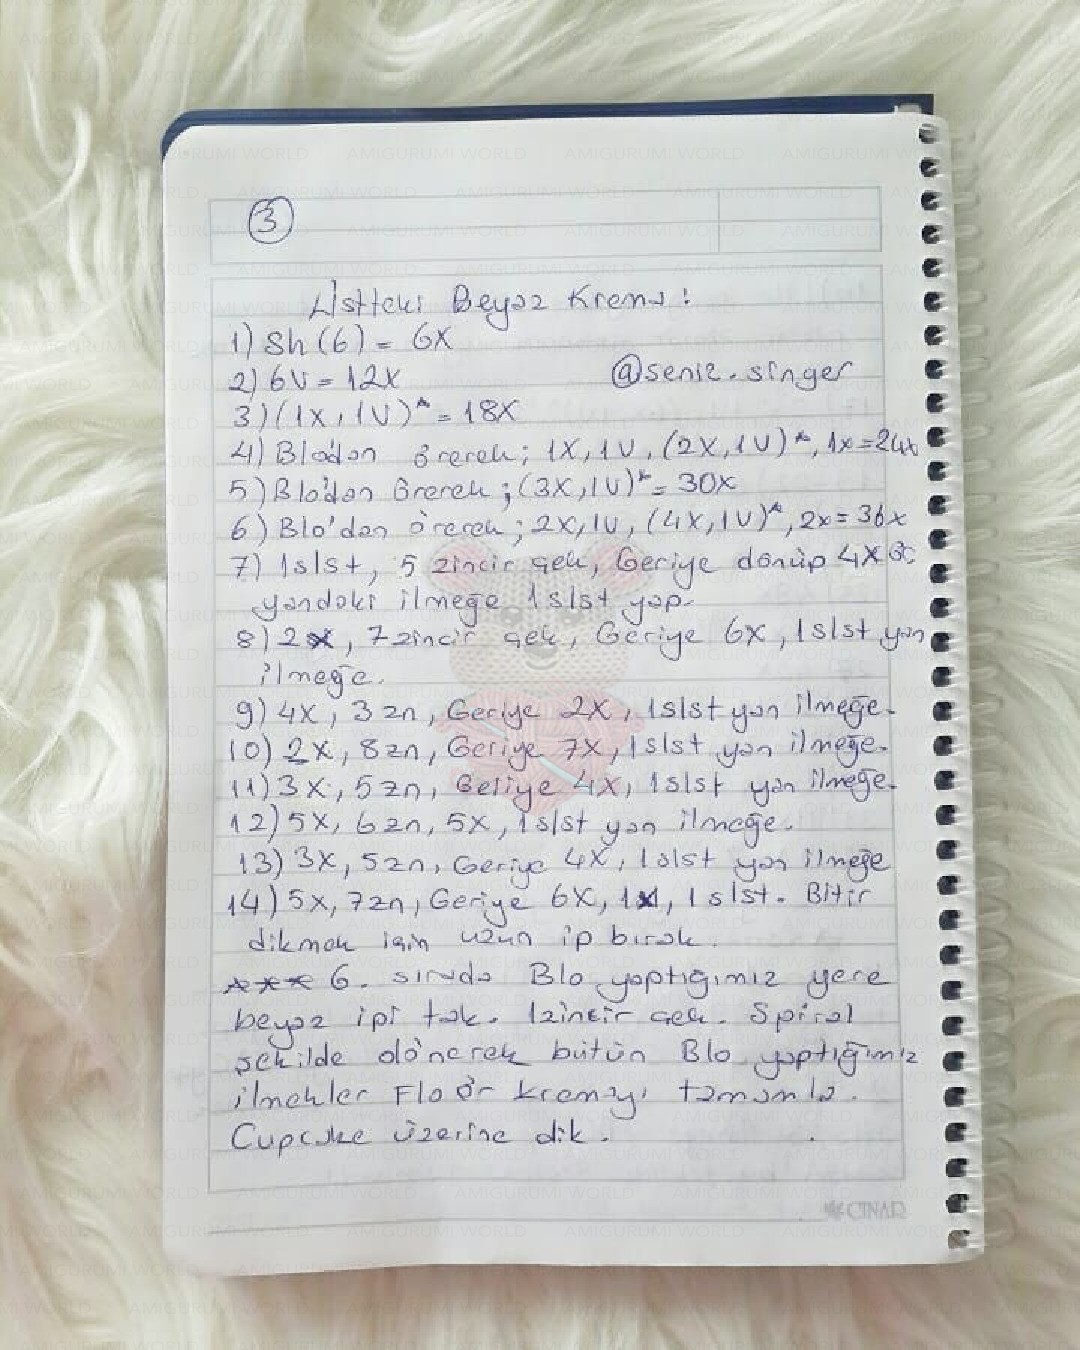 3
Üstteki Beyaz Krema:
1) Sh (6) = 6X
2) 6V = 12X
@seniz.singer
3) (1X, 1V)* = 18X
4) Blo'dan örerek; 1X, 1V, (2X, 1V)*, 1x = 24x
5) Blo'dan örerek; (3X, 1V)* = 30X
6) Blo'dan örerek; 2X, 1V, (4X, 1V)*, 2x = 36x
7) 1slst, 5 zincir çek, Geriye dönüp 4X
yandaki ilmeğe 1slst yap.
8) 2x, 7zincir çek, Geriye 6X, 1slst yan
ilmeğe.
9) 4X, 3zn, Geriye 2X, 1slst yan ilmeğe.
10) 2X, 8zn, Geriye 7X, 1slst yan ilmeğe.
11) 3X, 5zn, Geriye 4X, 1slst yan ilmeğe.
12) 5X, 6zn, 5X, 1slst yan ilmeğe.
13) 3X, 5zn, Geriye 4X, 1slst yan ilmeğe
14) 5X, 7zn, Geriye 6X, 1x, 1slst. Bitir
dikmek için uzun ip bırak.
*** 6. sırada Blo yaptığımız yere
beyaz ipi tak. 1zincir çek. Spiral
şekilde dönerek bütün Blo yaptığımız
ilmekler Flo ör kremayı tamamla.
Cupcake üzerine dik.
ÇINAR
AMIGURUMI WORLD